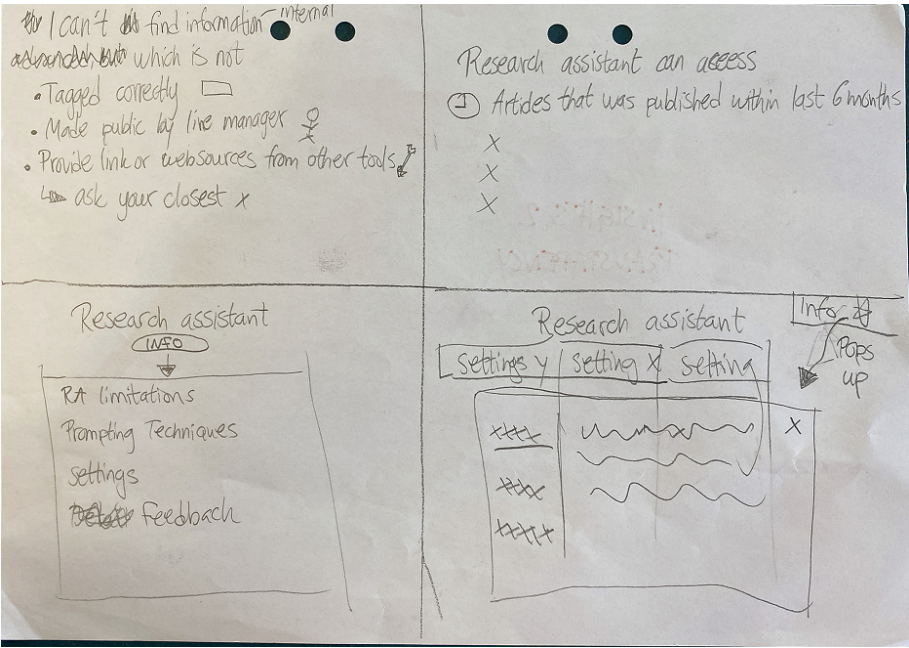 I can't find information internal
which is not
• Tagged correctly
• Made public by line manager
• Provide link or websources from other tools
ask your closest x
Research assistant can access
Articles that was published within last 6 months
x
x
x
Research assistant
INFO
RA limitations
Prompting Techniques
settings
feedback
Research assistant
Infor
Pops
up
settings y
setting x
setting
xxxx
x
xxxx
xxxx